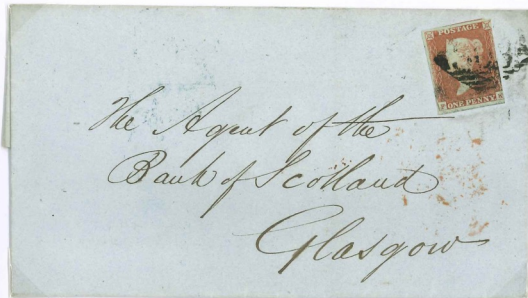 POSTAGE
ONE PENNY
The Agent of the
Bank of Scotland
Glasgow